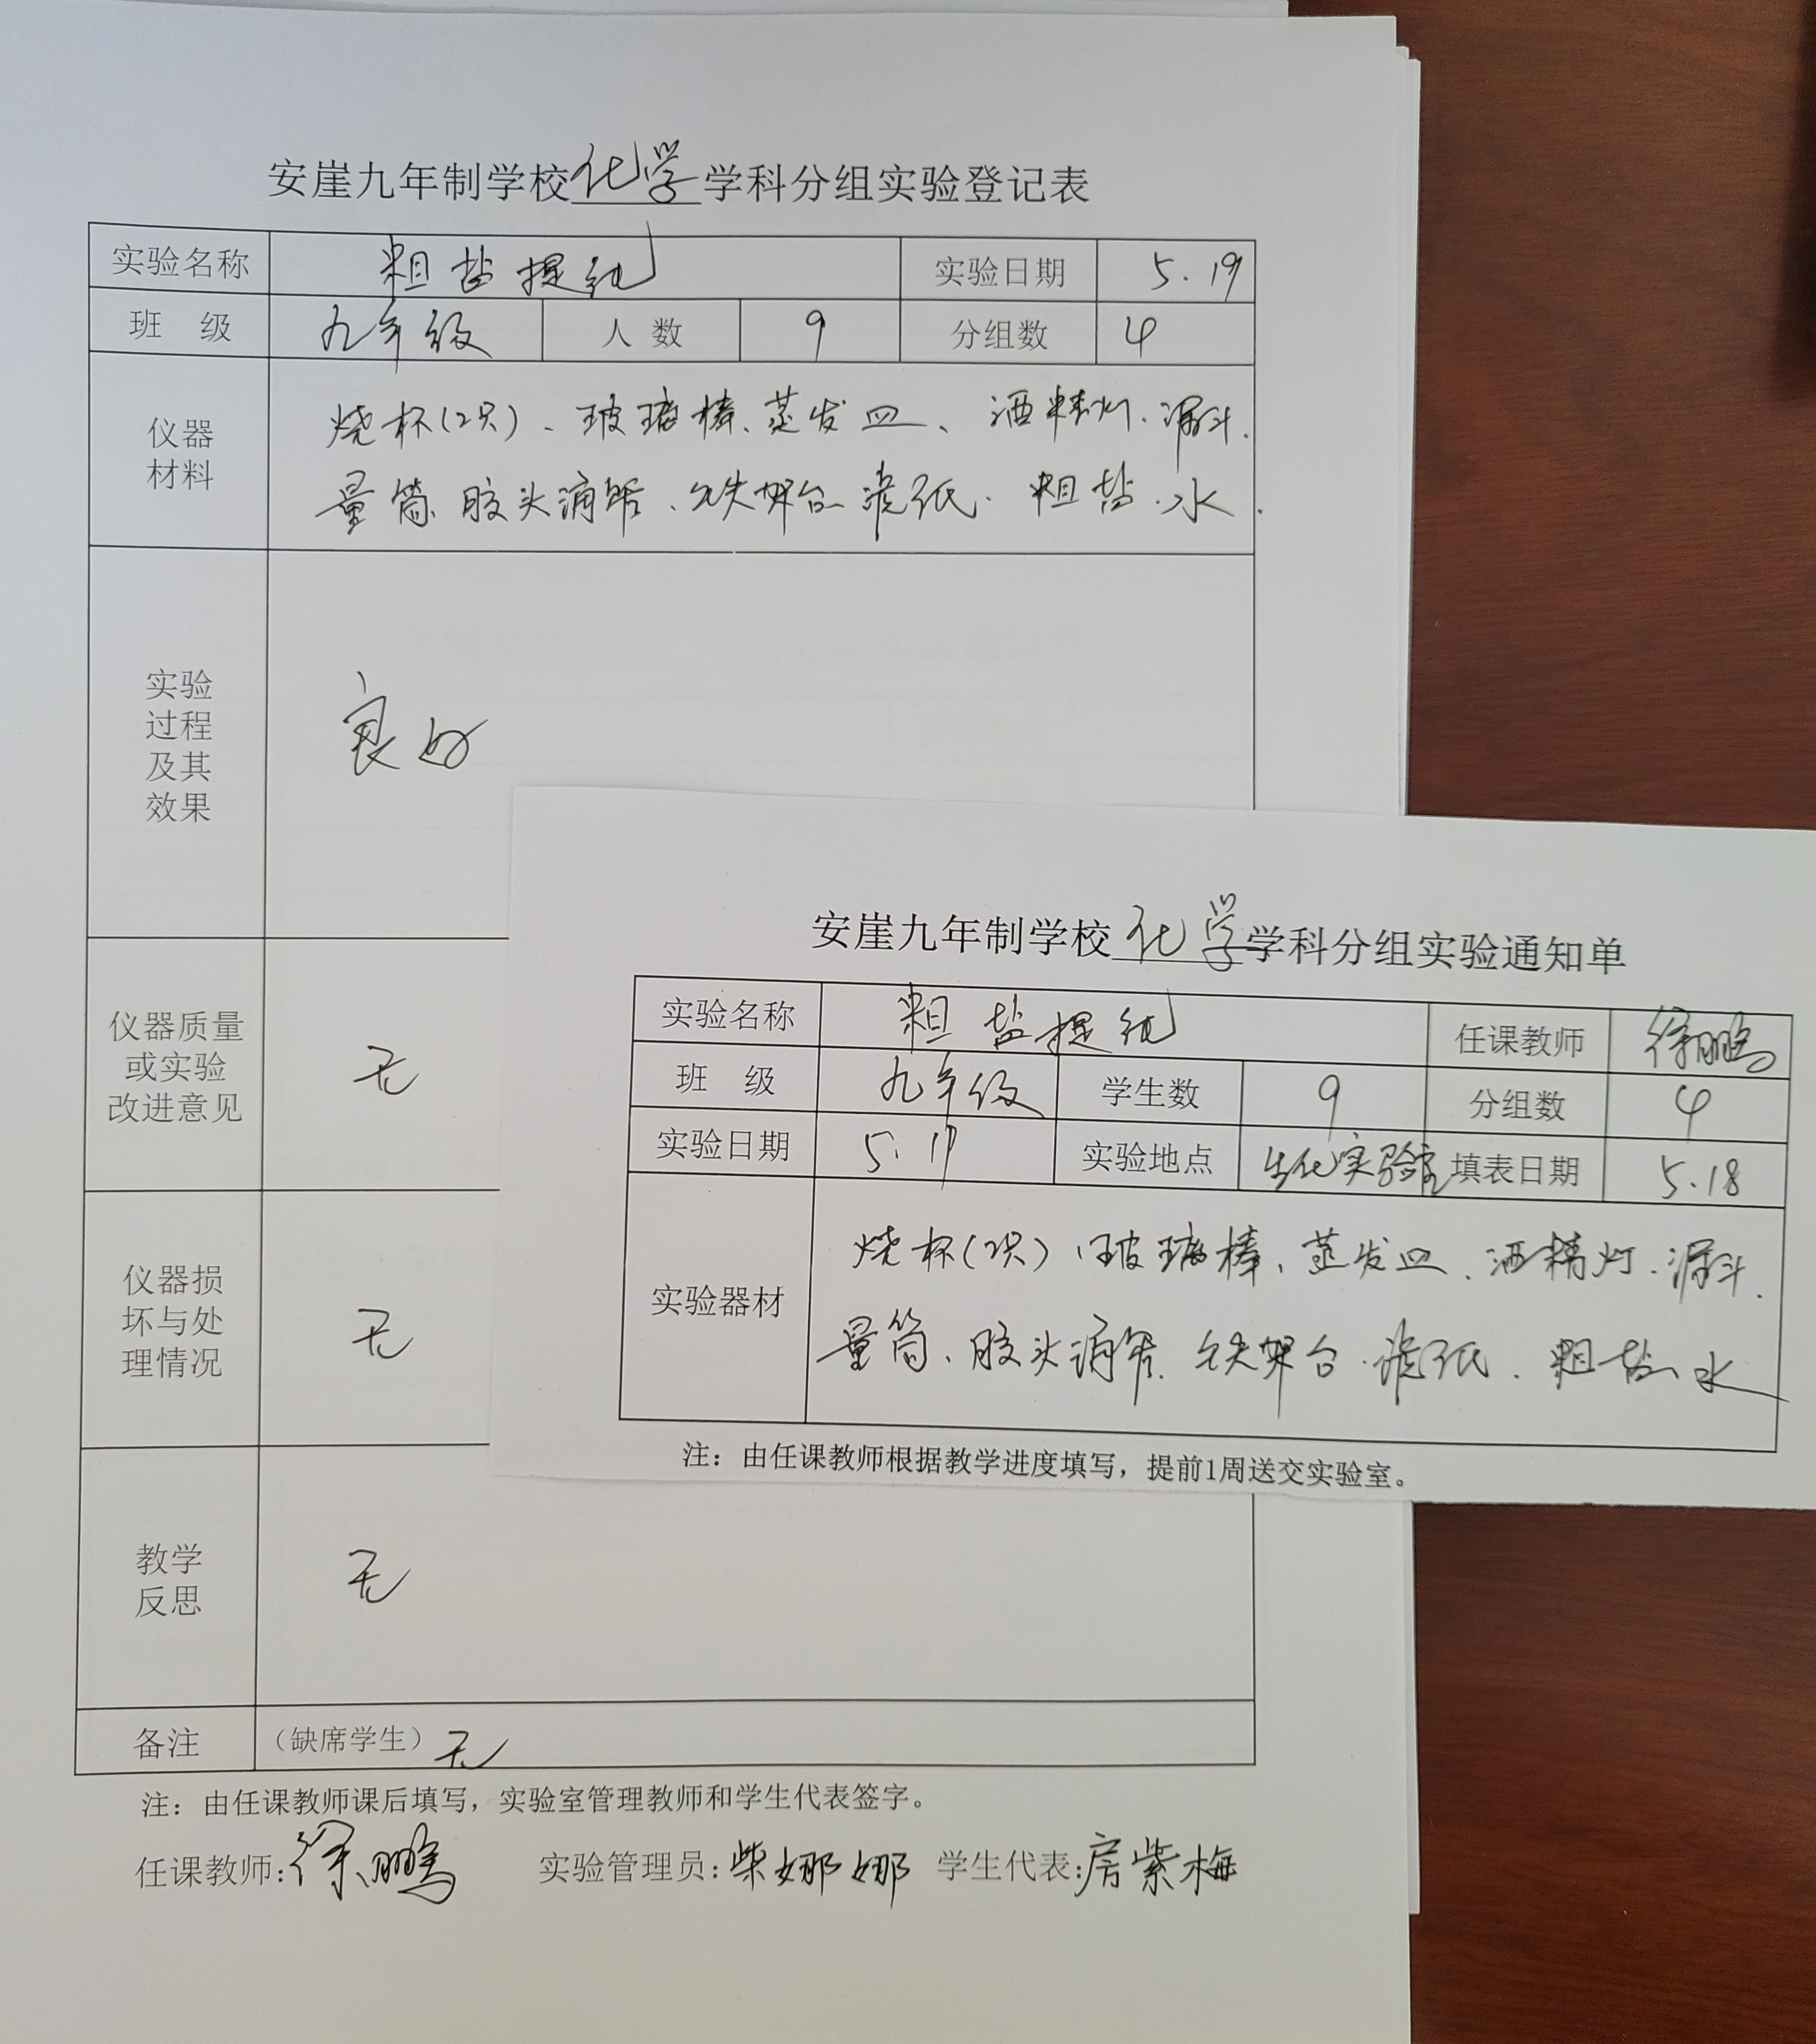 安崖九年制学校化学学科分组实验登记表
实验名称 粗盐提纯 实验日期 5.19
班 级 九年级 人 数 9 分组数 4
仪器材料 烧杯(2只)、玻璃棒、蒸发皿、酒精灯、漏斗、
量筒、胶头滴管、铁架台、滤纸、粗盐、水.
实验
过程
及其
效果
良好
仪器质量
或实验
改进意见
无
仪器损
坏与处
理情况
无
教学
反思
无
备注 (缺席学生) 无
注：由任课教师课后填写，实验室管理教师和学生代表签字。
任课教师:徐鹏 实验管理员:柴娜娜 学生代表:房紫梅
安崖九年制学校化学学科分组实验通知单
实验名称 粗盐提纯 任课教师 徐鹏
班 级 九年级 学生数 9 分组数 4
实验日期 5.19 实验地点 生化实验室 填表日期 5.18
实验器材 烧杯(2只)、玻璃棒、蒸发皿、酒精灯、漏斗.
量筒、胶头滴管、铁架台、滤纸、粗盐、水
注：由任课教师根据教学进度填写，提前1周送交实验室。